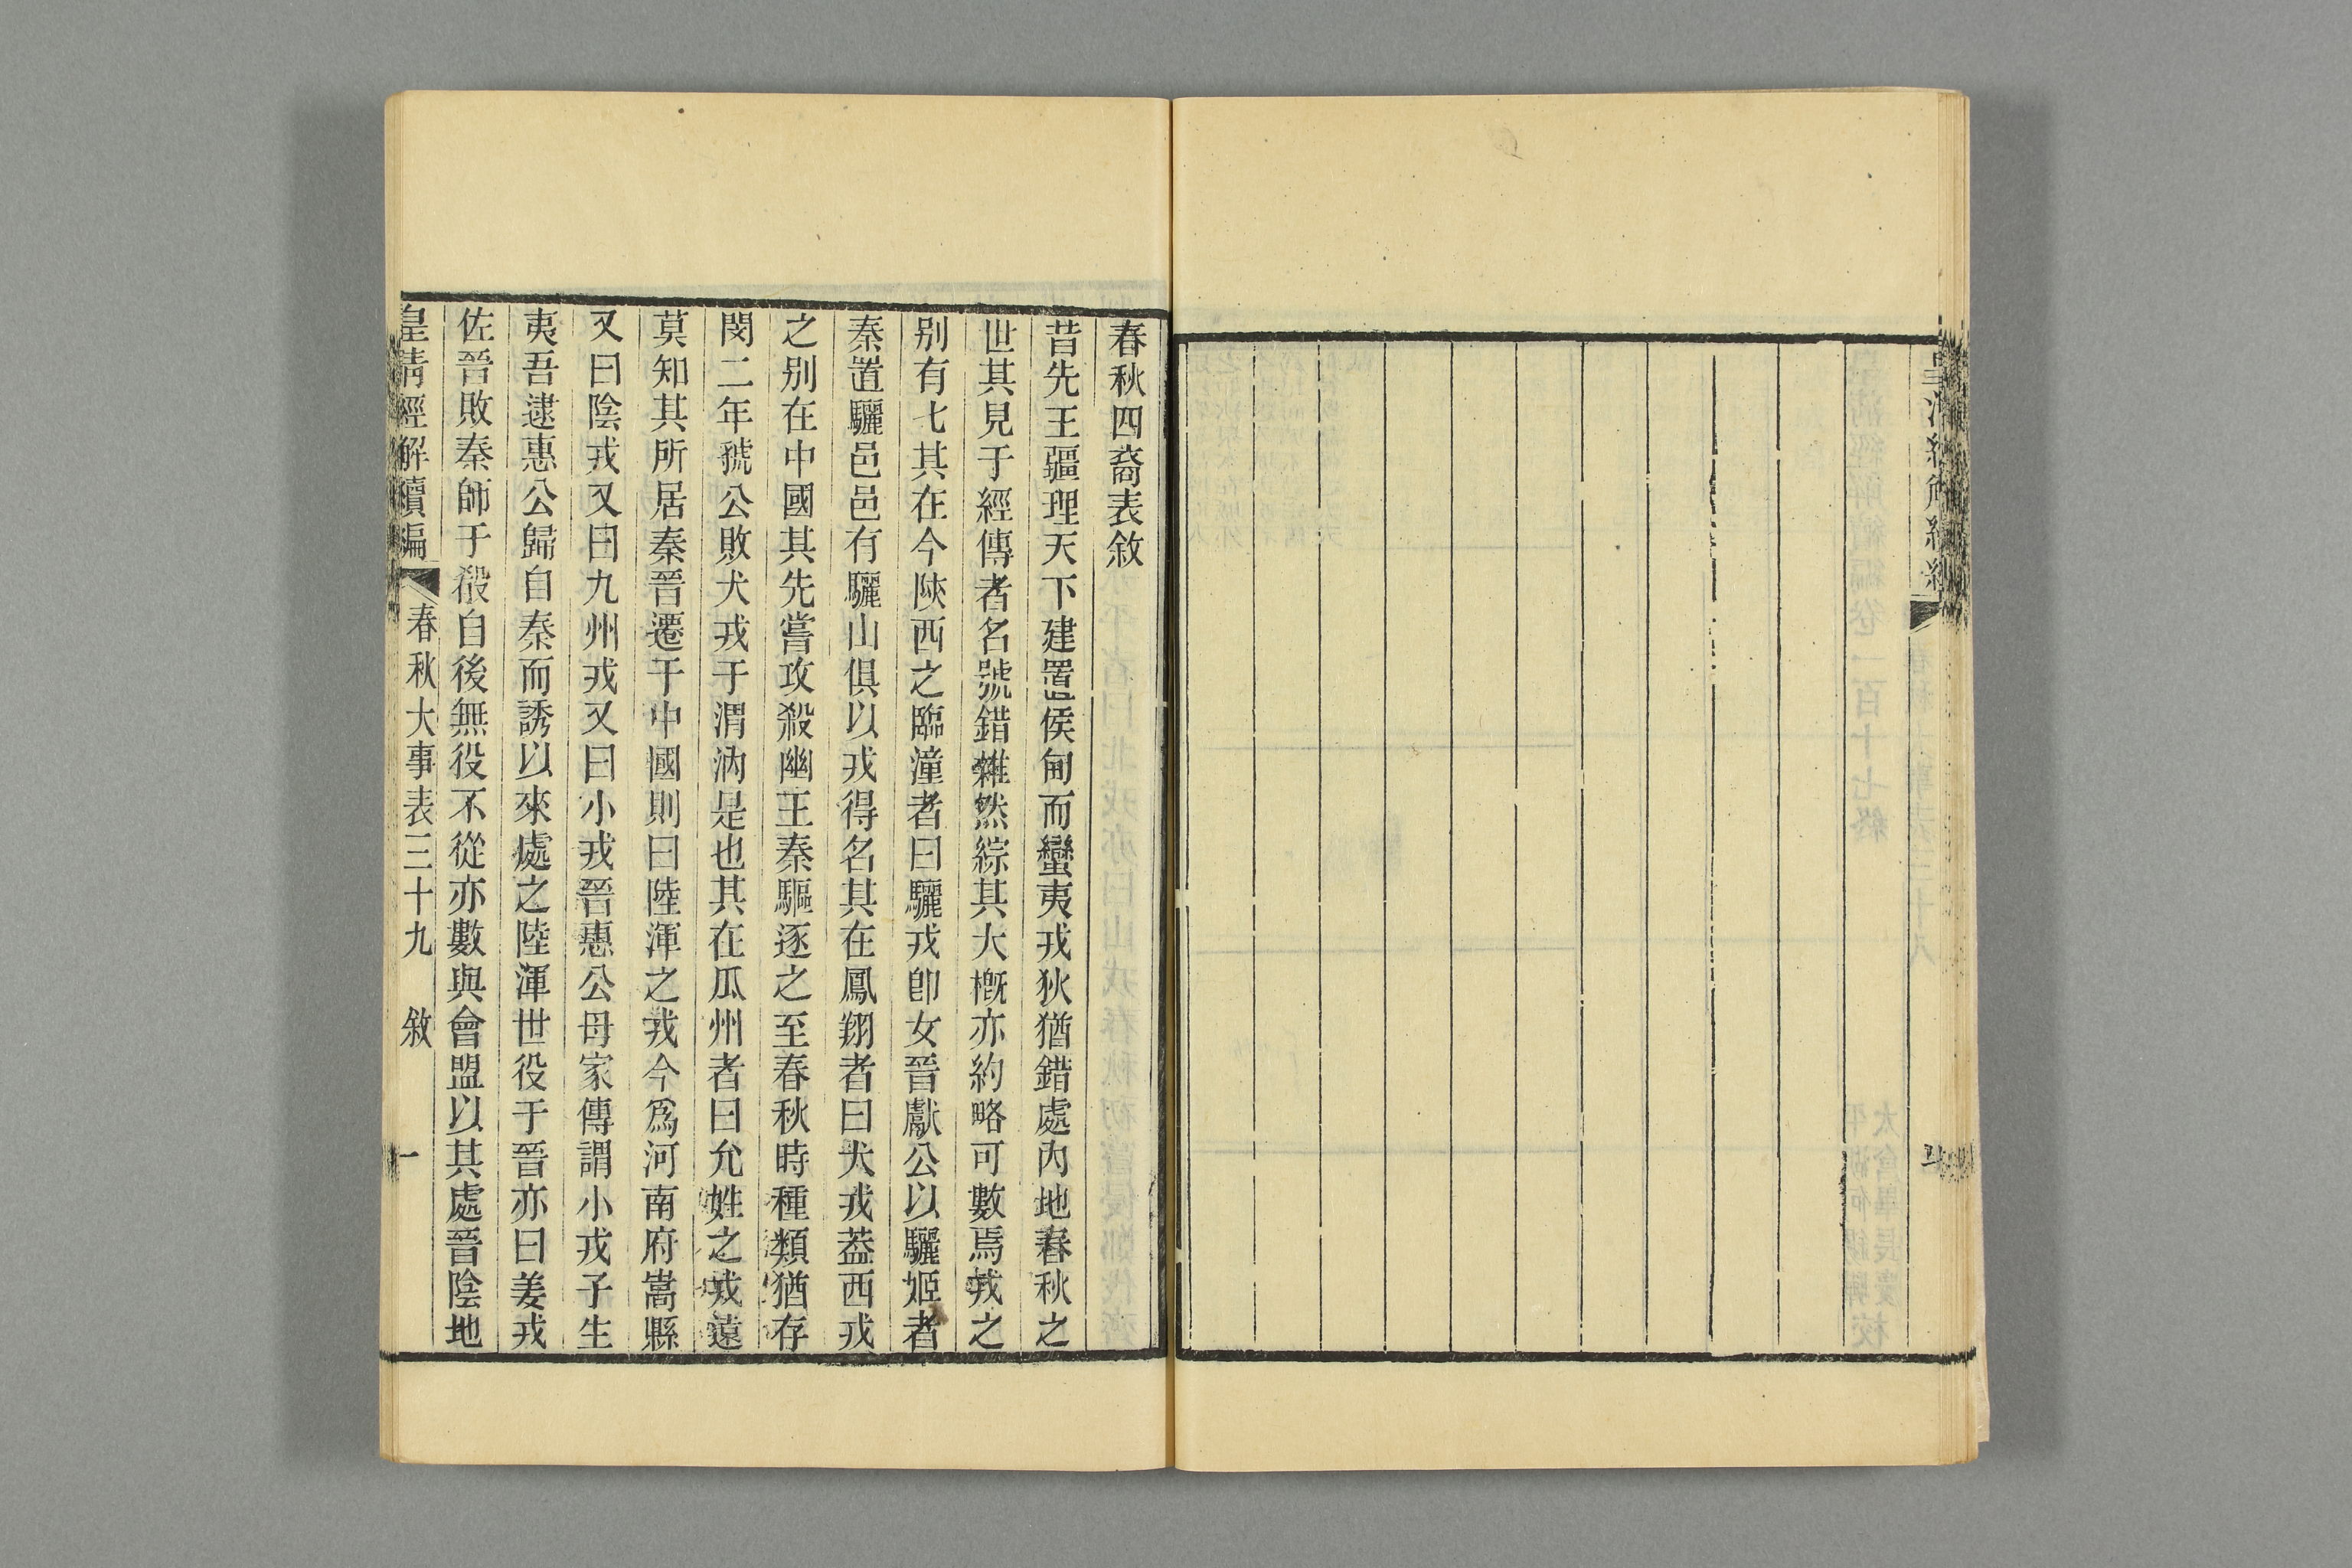 春秋四裔表敘
昔先王疆理天下建置侯甸而蠻夷戎狄猶錯處內地春秋之
世其見于經傳者名號錯雜然綜其大槪亦約略可數焉戎之
別有七其在今陝西之臨潼者曰驪戎卽女晉獻公以驪姬者
秦置驪邑邑有驪山俱以戎得名其在鳳翔者曰犬戎葢西戎
之別在中國其先嘗攻殺幽王秦驅逐之至春秋時種類猶存
閔二年虢公敗犬戎于渭汭是也其在瓜州者曰允姓之戎遠
莫知其所居秦晉遷于中國則曰陸渾之戎今爲河南府嵩縣
又曰陰戎又曰九州戎又曰小戎晉惠公母家傳謂小戎子生
夷吾逮惠公歸自秦而誘以來處之陸渾世役于晉亦曰姜戎
佐晉敗秦師于殽自後無役不從亦數與會盟以其處晉陰地
皇淸經解續編 春秋大事表三十九 敘 一